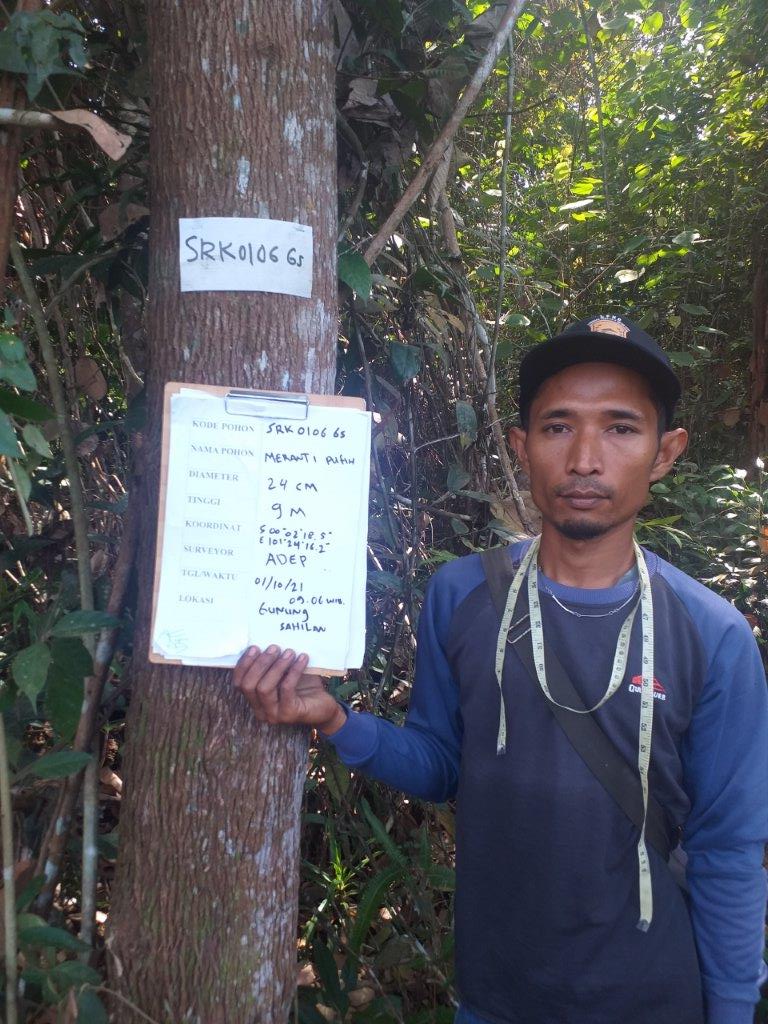 SRK0106 GS
KODE POHON SRK 0106 GS
NAMA POHON MERANTI PUTIH
DIAMETER 24 CM
TINGGI 9 M
KOORDINAT S 00°02'18.5"
E 101°24'16.2"
SURVEYOR ADEP
TGL/WAKTU 01/10/21
09.06 WIB.
LOKASI GUNUNG
SAHILAN